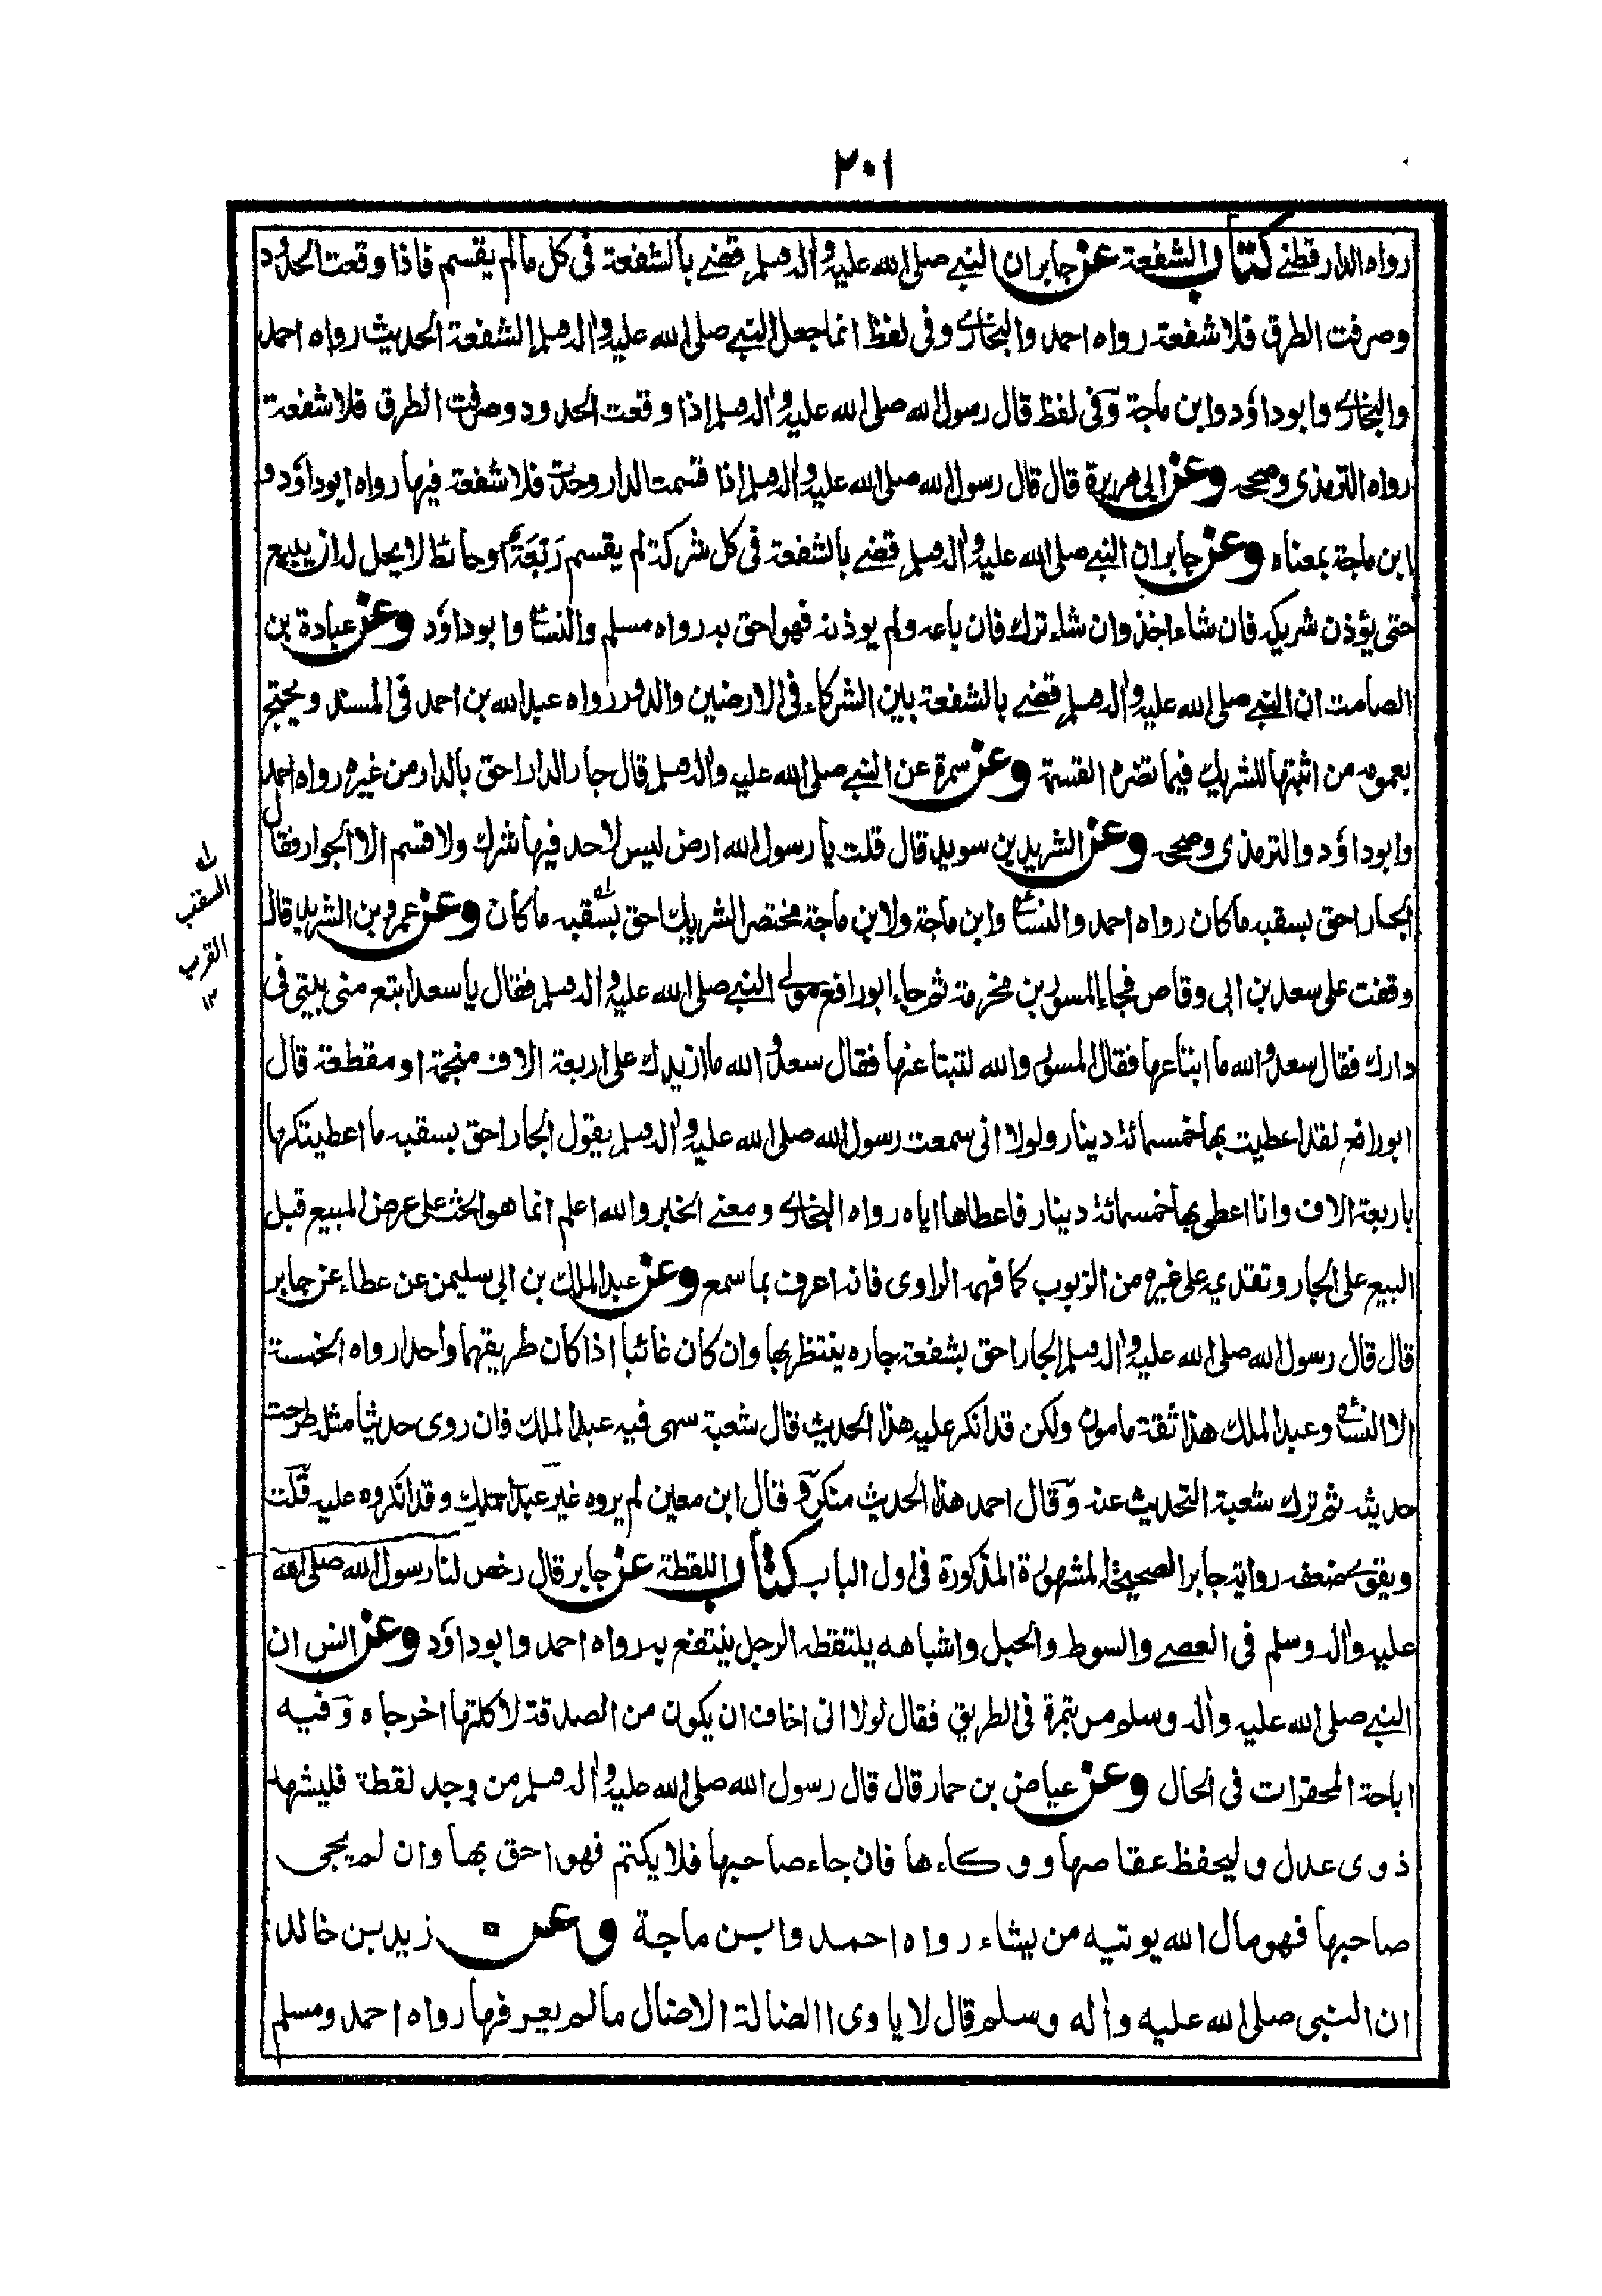 ٢٠١
رواه الدارقطني كتاب الشفعة عن جابر ان النبي صلى الله عليه واله وسلم قضى بالشفعة فى كل مالم يقسم فاذا وقعت الحدود
وصرفت الطرق فلا شفعة رواه احمد والبخارى وفى لفظ انما جعل النبي صلى الله عليه واله وسلم الشفعة الحديث رواه احمد
والبخارى وابو داؤد وابن ماجة وفى لفظ قال رسول الله صلى الله عليه واله وسلم اذا وقعت الحدود وصرفت الطرق فلا شفعة
رواه الترمذى وصححه وعن ابى هريرة قال قال رسول الله صلى الله عليه واله وسلم اذا قسمت الدار وحدت فلا شفعة فيها رواه ابو داؤد و
ابن ماجة بمعناه وعن جابر ان النبي صلى الله عليه واله وسلم قضى بالشفعة فى كل شركة لم يقسم رَبَعَةً او حائط لا يحل له ان يبيع
حتى يؤذن شريكه فان شاء اخذ وان شاء ترك فان باعه ولم يوذنه فهو احق به رواه مسلم والنسائى وابو داؤد وعن عبادة بن
الصامت ان النبي صلى الله عليه واله وسلم قضى بالشفعة بين الشركاء فى الارضين والدور رواه عبد الله بن احمد فى المسند ويحتج
بعمومه من اثبتها للشريك فيما تضره القسمة وعن سمرة عن النبي صلى الله عليه واله وسلم قال جار الدار احق بالدار من غيره رواه احمد
وابو داؤد والترمذى وصححه وعن الشريد بن سويد قال قلت يا رسول الله ارض ليس لاحد فيها شرك ولا قسم الا الجوار فقال
الجار احق بسقبه ما كان رواه احمد والنسائى وابن ماجة ولابن ماجة مختصر الشريك احق بسقبه ما كان وعن عمرو بن الشريد قال
وقفت على سعد بن ابى وقاص فجاء المسور بن مخرمة ثم جاء ابو رافع مولى النبي صلى الله عليه واله وسلم فقال يا سعد ابتع منى بيتى فى
دارك فقال سعد والله ما ابتاعها فقال المسور والله لتبتاعنها فقال سعد والله ما ازيدك على اربعة الاف منجمة او مقطعة قال
ابو رافع لقد اعطيت بها خمسمائة دينار ولولا انى سمعت رسول الله صلى الله عليه واله وسلم يقول الجار احق بسقبه ما اعطيتكها
باربعة الاف وانا اعطى بها خمسمائة دينار فاعطاها اياه رواه البخارى ومعنى الخبر والله اعلم انما هو الحث على عرض المبيع قبل
البيع على الجار وتقديمه على غيره من الزبون كما فهمه الراوى فانه اعرف بما سمع وعن عبد الملك بن ابى سليمن عن عطاء عن جابر
قال قال رسول الله صلى الله عليه واله وسلم الجار احق بشفعة جاره ينتظر بها وان كان غائبا اذا كان طريقهما واحدا رواه الخمسة
الا النسائى وعبد الملك هذا ثقة مامون ولكن قد انكر عليه هذا الحديث قال شعبة سهى فيه عبد الملك فان روى حديثا مثله طرحت
حديثه ثم ترك شعبة التحديث عنه وقال احمد هذا الحديث منكر وقال ابن معين لم يروه غير عبد الملك وقد انكروه عليه قلت
ويقوى ضعفه رواية جابر الصحيحة المشهورة المذكورة فى اول الباب كتاب اللقطة عن جابر قال رخص لنا رسول الله صلى الله
عليه واله وسلم فى العصى والسوط والحبل واشباهه يلتقطه الرجل ينتفع به رواه احمد وابو داؤد وعن انس ان
النبي صلى الله عليه واله وسلم مر بتمرة فى الطريق فقال لولا انى اخاف ان يكون من الصدقة لاكلتها اخرجاه وفيه
اباحة المحقرات فى الحال وعن عياض بن حمار قال قال رسول الله صلى الله عليه واله وسلم من وجد لقطة فليشهد
ذوى عدل وليحفظ عفاصها ووكاءها فان جاء صاحبها فلا يكتم فهو احق بها وان لم يجى
صاحبها فهو مال الله يوتيه من يشاء رواه احمد وابن ماجة وعن زيد بن خالد
ان النبى صلى الله عليه واله وسلم قال لا ياوى الضالة الا ضال مالم يعرفها رواه احمد ومسلم
السقب
القرب
١٢